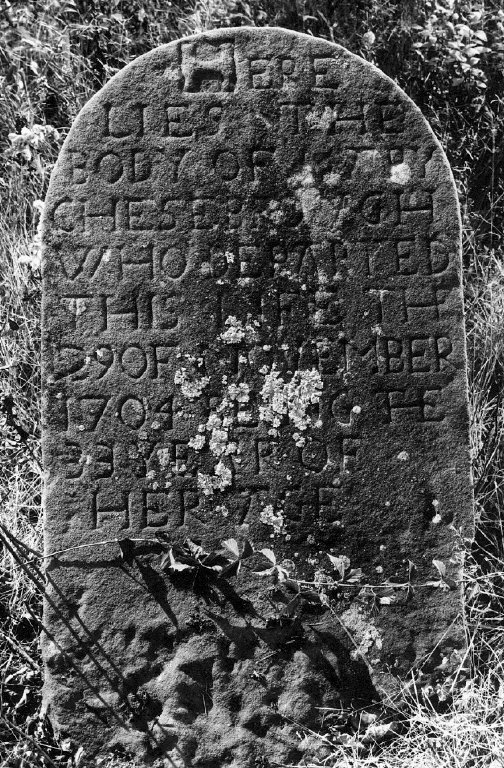 HERE
LIES THE
BODY OF
CHESEBROUGH
WHO DEPARTED
THIS LIFE THE
29 OF NOVEMBER
1704 BEING THE
33 YEAR OF
HER AGE